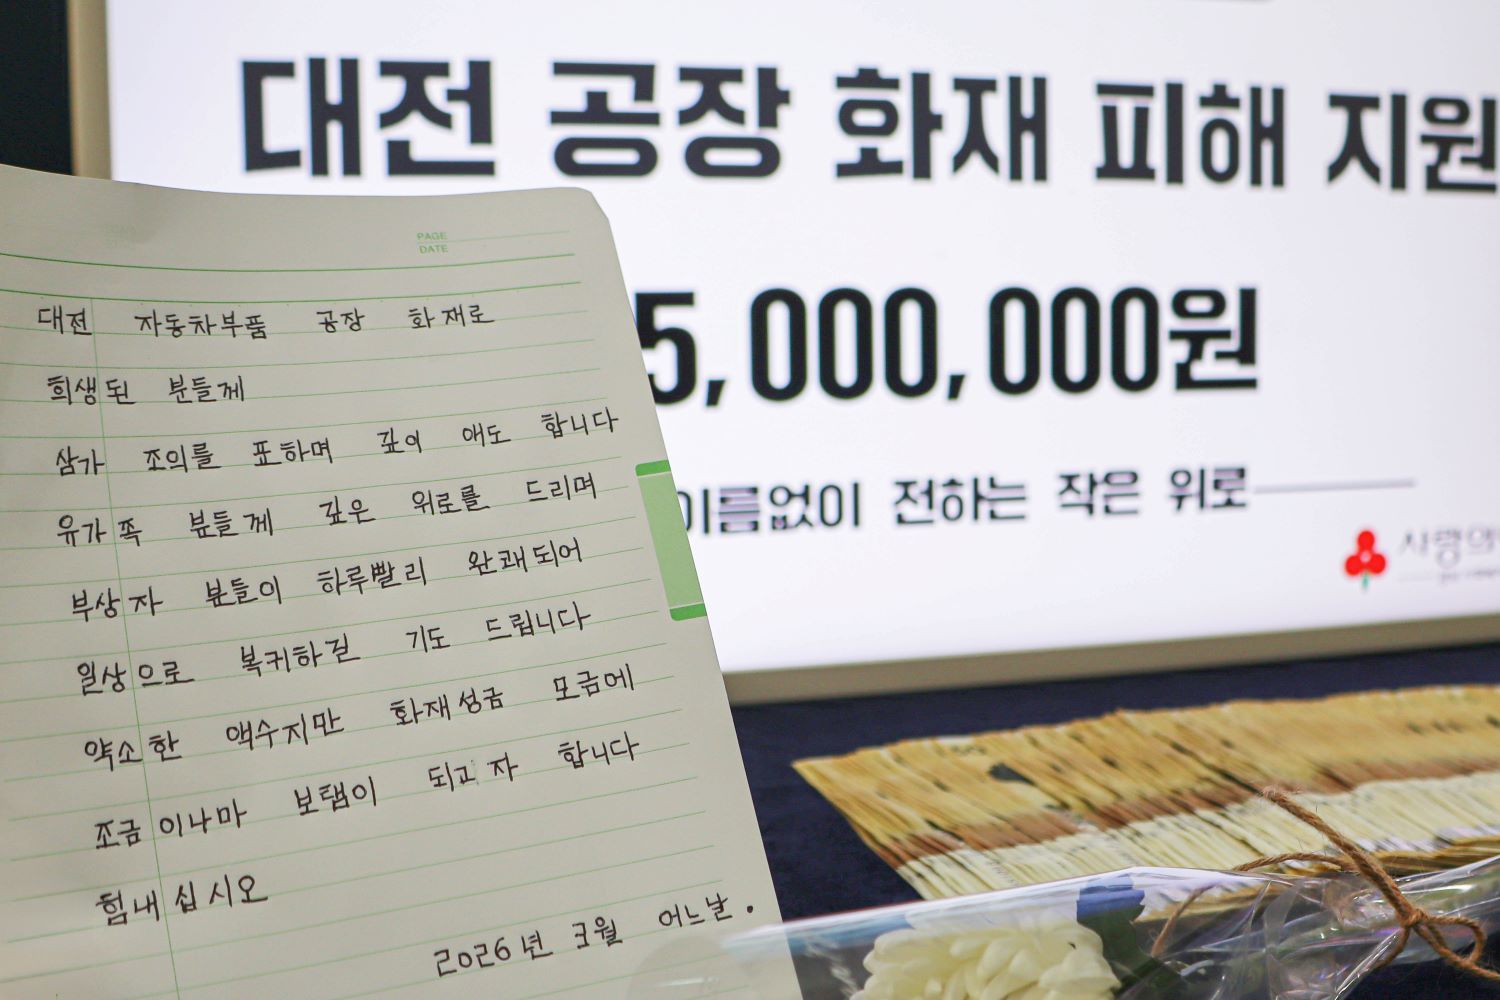 대전 공장 화재 피해 지원
5,000,000원
이름없이 전하는 작은 위로
사랑의
PAGE
DATE
대전 자동차부품 공장 화재로
희생된 분들께
삼가 조의를 표하며 깊이 애도 합니다
유가족 분들께 깊은 위로를 드리며
부상자 분들이 하루빨리 완쾌되어
일상으로 복귀하길 기도 드립니다
약소한 액수지만 화재성금 모금에
조금이나마 보탬이 되고자 합니다
힘내십시오
2026년 3월 어느날.